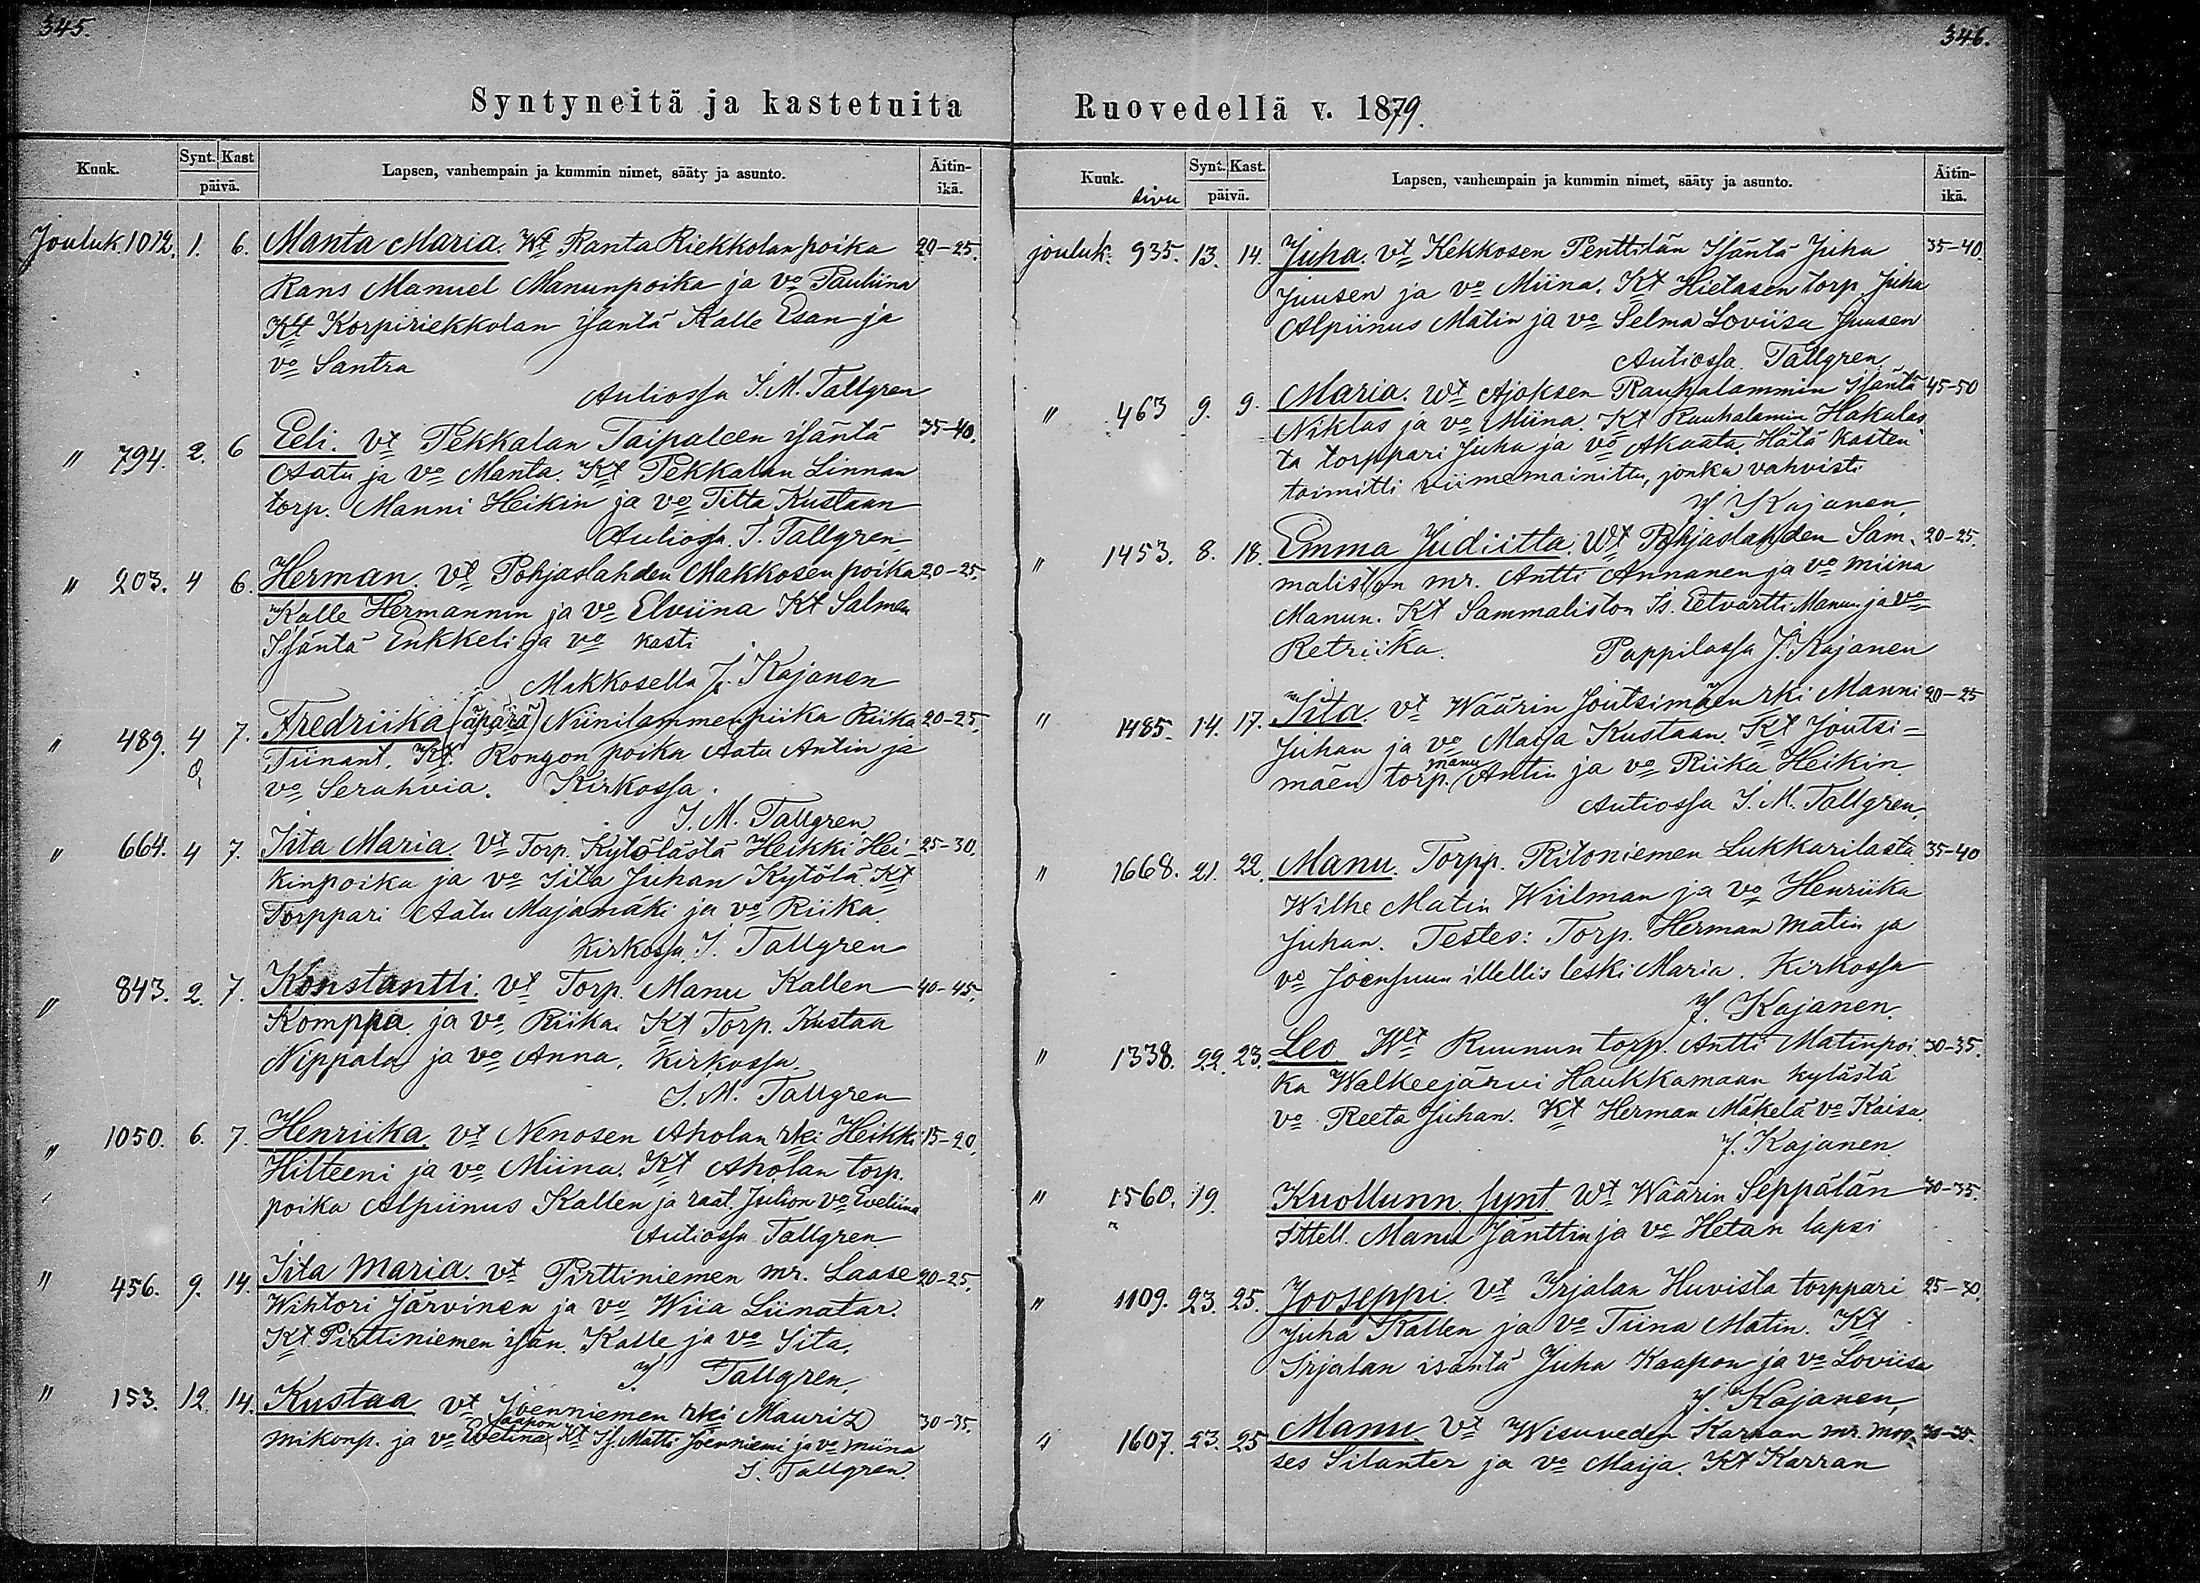 345.
Syntyneitä ja kastetuita
Kuuk. Synt. Kast päivä. Lapsen, vanhempain ja kummin nimet, sääty ja asunto. Äitin-ikä.
Jouluk. 1012. 1. 6. Manta Maria. Wt Ranta Riekkolan poika 20-25.
Rans Manuel Manunpoika ja vo Pauliina
Kt Korpiriekkolan isäntä Kalle Esan ja
vo Santra
Autiossa I. M. Tallgren
" 794. 2. 6 Eeli. vt Pekkalan Taipaleen isäntä 35-40.
Aatu ja vo Manta. Kt Pekkalan Linnan
torp. Manni Heikin ja vo Titta Kustaan
Autiossa. I. Tallgren
" 203. 4 6. Herman. vt Pohjaslahden Makkosen poika 20-25.
Kalle Hermannin ja vo Elviina Kt Salmen
Isäntä Enkkeli ja vo kasti
Makkosella J. Kajanen
" 489. 4 7. Fredriika (äpärä) Niinilammen piika Riika 20-25.
Tiinant. Kt. Rongon poika Aatu Antin ja
vo Serahvia. Kirkossa.
I. M. Tallgren
" 664. 4 7. Iita Maria. vt Torp. Kytölästä Heikki Hei- 25-30.
kinpoika ja vo Iita Juhan Kytölä. Kt
Torppari Aatu Majamäki ja vo Riika.
Kirkossa. I. Tallgren
" 843. 2. 7. Konstantti. vt Torp. Manu Kallen 40-45.
Komppa ja vo Riika. Kt Torp. Kustaa
Nippala ja vo Anna. Kirkossa.
I. M. Tallgren
" 1050. 6. 7. Henriika. vt Nenosen Aholan rki Heikki 15-20.
Hilteeni ja vo Miina. Kt Aholan torp.
poika Alpiinus Kallen ja raat. Julion vo Eveliina
Autiossa Tallgren.
" 456. 9. 14. Iita Maria. vt Pirttiniemen mr. Laase 20-25.
Wihtori Järvinen ja vo Wiia Liinatar.
Kt Pirttiniemen isän. Kalle ja vo Iita.
I. Tallgren.
" 153. 12. 14. Kustaa vt Joenniemen rki Mauriz 30-35.
Jaapon
Mikonp. ja vo Evelina Kt Is. Matti Joenniemi ja vo Miina
I. Tallgren.
346.
Ruovedellä v. 1879.
Kuuk. sivu Synt. Kast. päivä. Lapsen, vanhempain ja kummin nimet, sääty ja asunto. Äitin-ikä.
jouluk. 935. 13. 14. Juha. vt Kekkosen Penttilän Isäntä Juha 35-40
Juusen ja vo Miina. Kt Hietasen torp. Juha
Alpiinus Matin ja vo Selma Loviisa Juusen
Autiossa. Tallgren.
" 463 9. 9. Maria. Wt Ajoksen Rauhalammin Isäntä 45-50
Niklas ja vo Miina. Kt Rauhalamin Hakalas
ta torppari Juha ja vo Akaata. Hätä kasteu
toimitti viimemainittu, jonka vahvisti
J Kajanen.
" 1453. 8. 18. Emma Judiitta. Wt Pohjaslahden Sam- 20-25.
maliston mr. Antti Annanen ja vo Miina
Manun. Kt Sammaliston Is. Eetvartti Manun ja vo
Retriika. Pappilassa J. Kajanen
" 1485. 14. 17. Iita. vt Wäärin Joutsimäen rki Manni 20-25
Juhan ja vo Maija Kustaan. Kt Joutsi-
manu
mäen torp. Antin ja vo Riika Heikin.
Autiossa I. M. Tallgren.
" 1668. 21. 22. Manu. Torpp. Ritoniemen Lukkarilasta 35-40
Wilhe Matin Wiilman ja vo Henriika
Juhan. Testes: Torp. Herman Matin ja
vo Joensuun itellis leski Maria. Kirkossa
J. Kajanen.
" 1338. 22. 23. Leo Wt Ruunun torp. Antti Matinpoi 30-35.
ka Walkeejärvi Haukkamaan kylästä
vo Reeta Juhan. Kt Herman Mäkelä vo Kaisa.
J. Kajanen.
" 1560. 19. Kuollunn. synt Wt Wäärin Seppälän 30-35.
Ittell. Manu Jänttin ja vo Hetan lapsi
" 1109. 23. 25. Jooseppi. vt Irjalan Huvista torppari 25-30.
Juha Kallen ja vo Tiina Matin. Kt
Irjalan isäntä Juha Kaapon ja vo Loviisa
J. Kajanen.
" 1607. 23. 25 Manu. vt Wisuveden Karran mr. Moo- 30-35.
ses Silanter ja vo Maija. Kt Karran